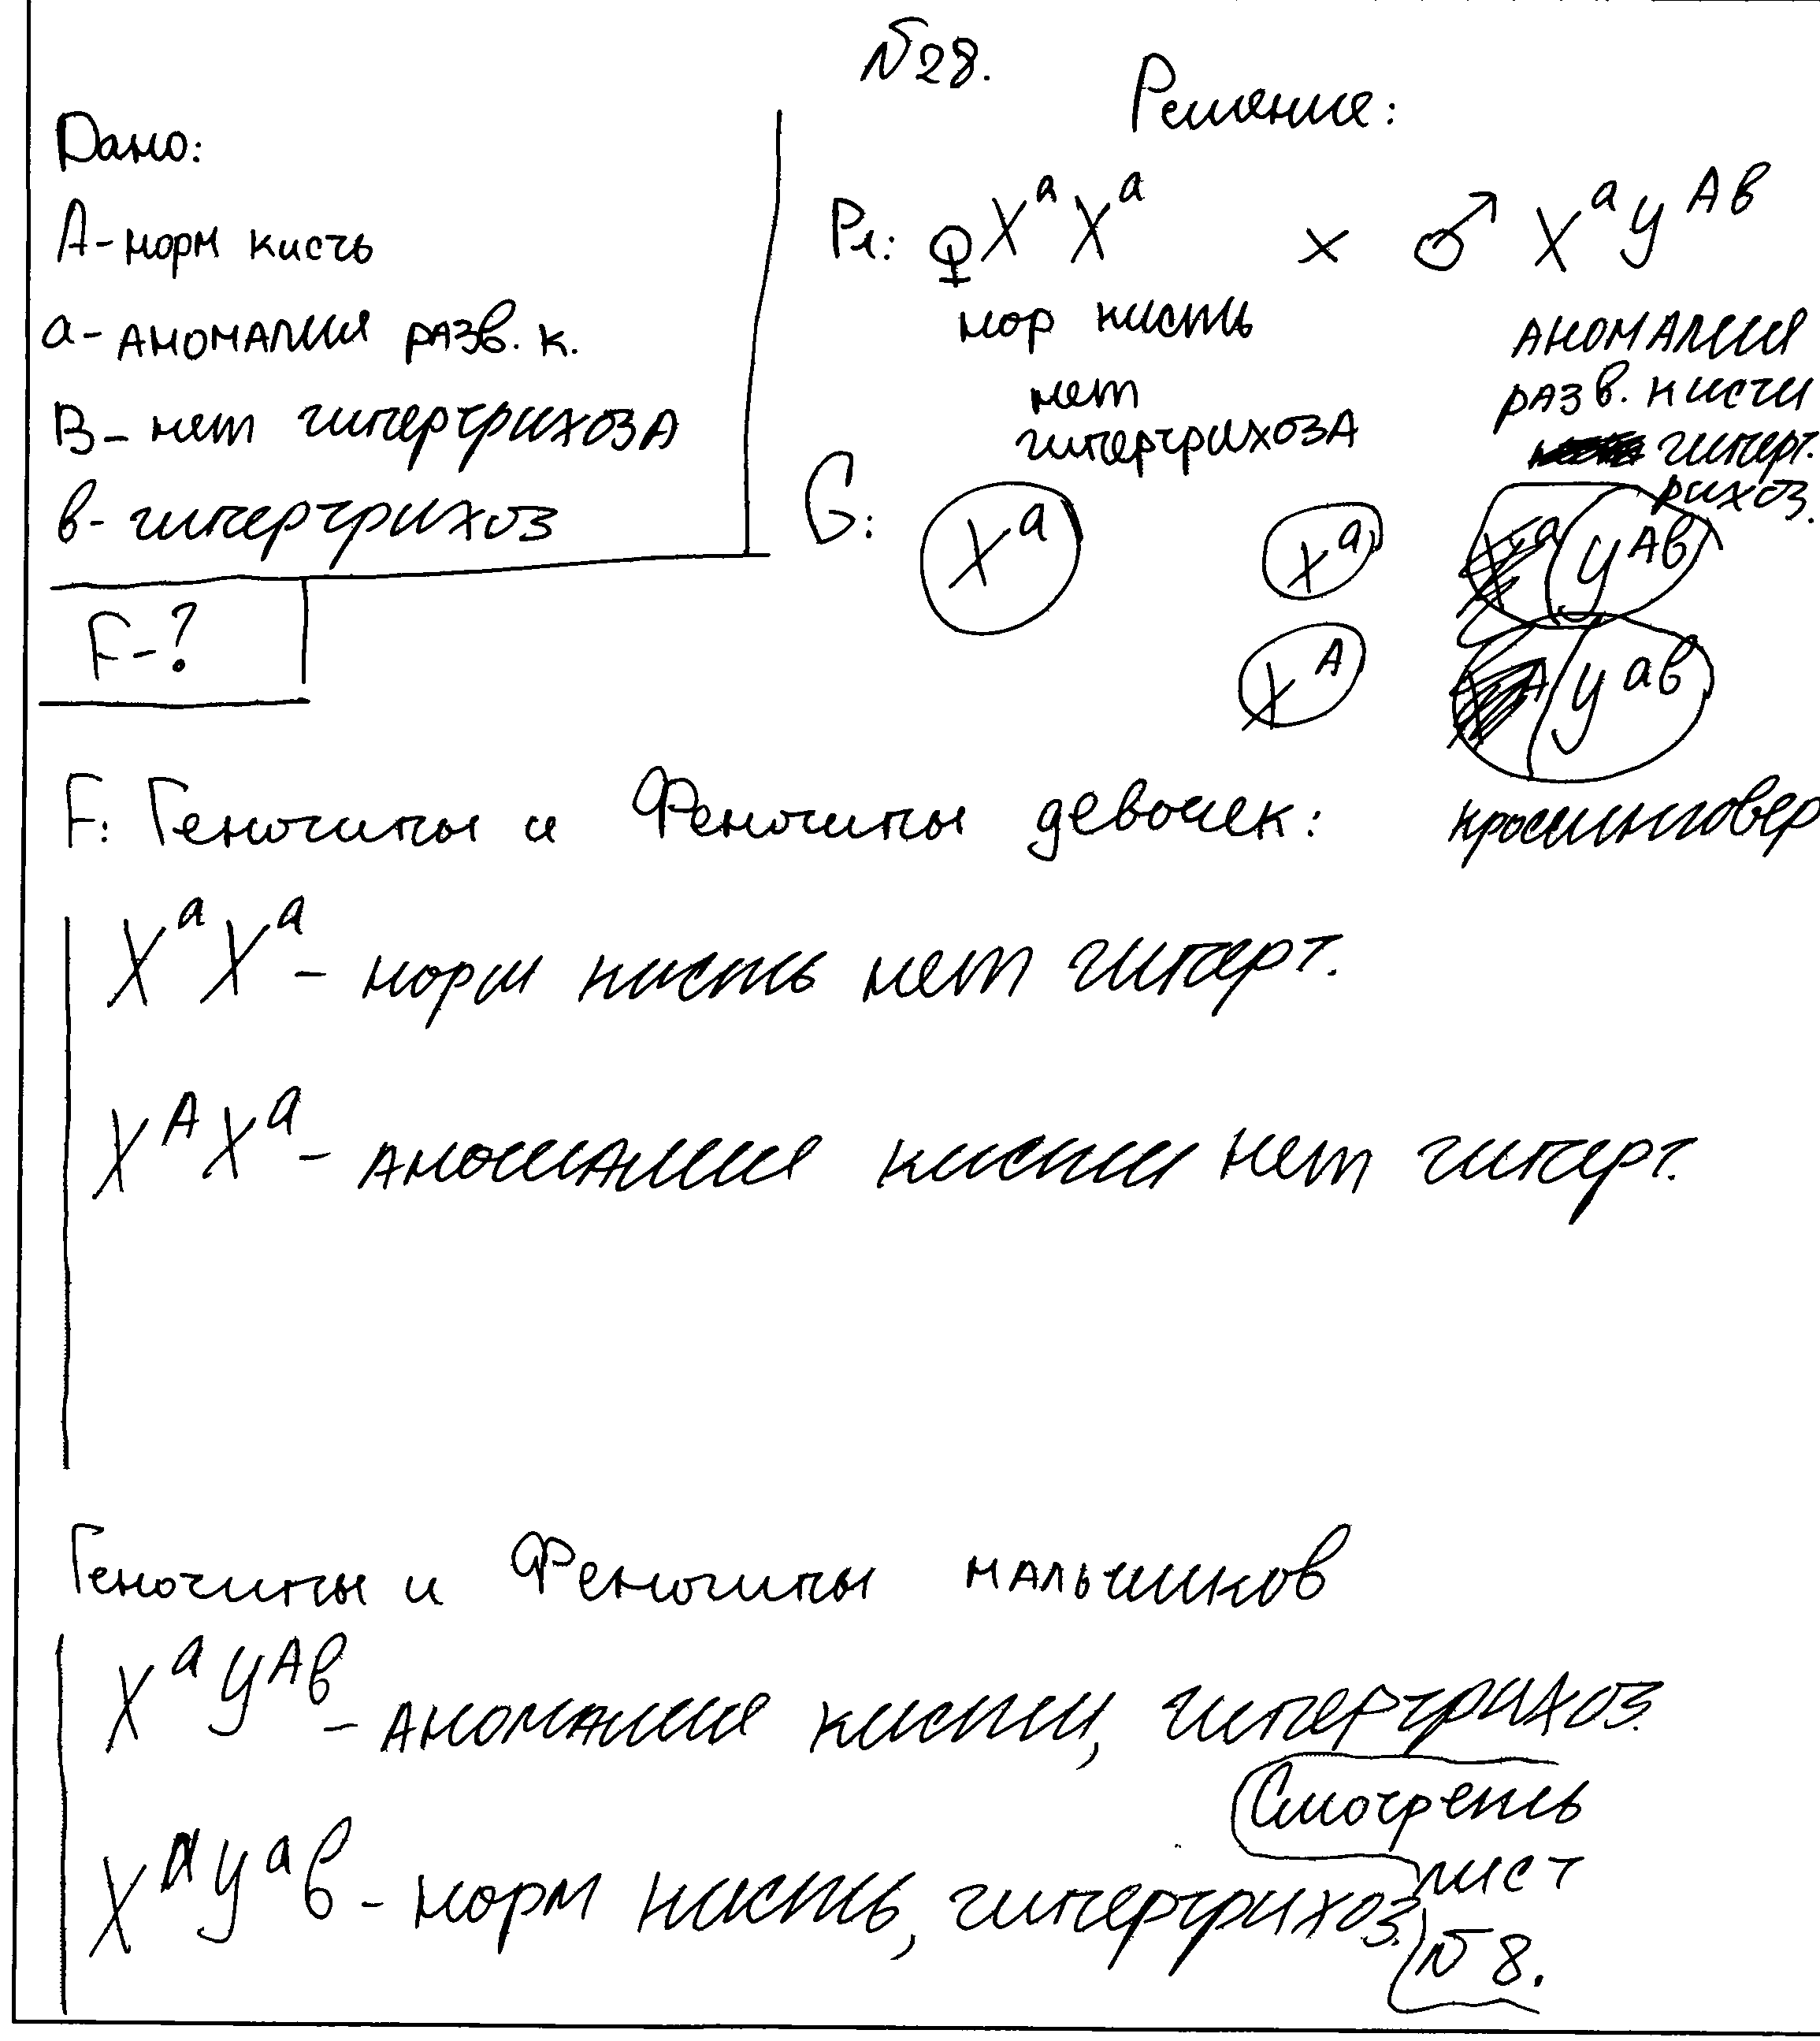 №28.
Решение:
Дано:
А - норм кисть
а - аномалия разв. к.
В - нет гипертрихоза
в - гипертрихоз
F - ?
P1: ♀ X^a X^a × ♂ X^a У^Ав
нор кисть
нет
гипертрихоза
аномалия
разв. кисти
гиперт.
рихоз.
G: X^a X^a У^Ав
X^A У^ав
F: Генотипы и Фенотипы девочек: кроссинговер
X^a X^a - норм кисть нет гиперт.
X^A X^a - аномалия кисти нет гиперт.
Генотипы и Фенотипы мальчиков
X^a У^Ав - аномалия кисти, гипертрихоз.
X^a У^ав - норм кисть, гипертрихоз.
Смотреть
лист
№ 8.